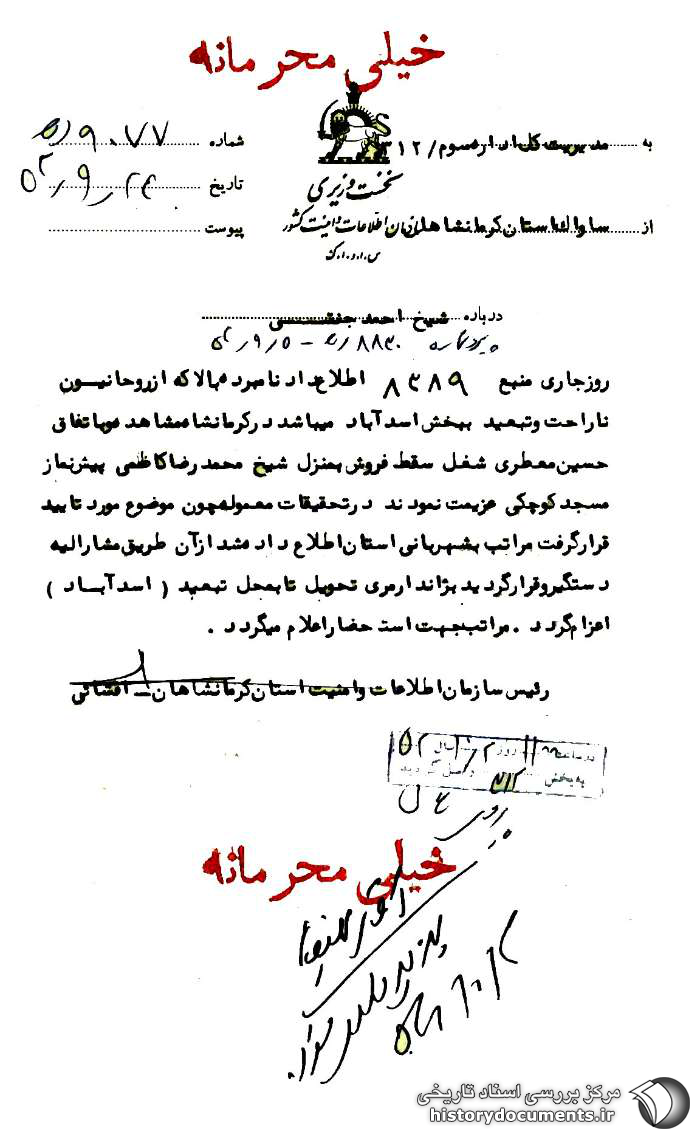 خیلی محرمانه
به مدیریت کل اداره سوم/۳۱۲
شماره ۹۰۷۷/ه
نخست وزیری
تاریخ ۵۲/۹/۲۴
از ساواک استان کرمانشاهان
سازمان اطلاعات و امنیت کشور
پیوست
س.ا.و.ا.ک
درباره شیخ احمد جنتی
پیرو شماره ۸۸۳۰/ه - ۵۲/۹/۵
روزجاری منبع ۸۳۸۹ اطلاع داد نامبرده بالا که از روحانیسون
ناراحت وتبعید ببخش اسدآباد میباشد در کرمانشاه مشاهده و باتفاق
حسین معطری شغل سقط فروش بمنزل شیخ محمد رضا کاظمی پیش نماز
مسجد کوچکی عزیمت نمودند در تحقیقات معموله چون موضوع مورد تایید
قرار گرفت مراتب بشهربانی استان اطلاع داده شد از آن طریق مشارالیه
دستگیر و قرار گردید بژاندارمری تحویل تا بمحل تبعید ( اسدآبـاد )
اعزام گردد . مراتب جهت استحضار اعلام میگردد .
رئیس سازمان اطلاعات وامنیت استان کرمانشاهان - افشائی
در ساعت روز سال
به بخش ۳۱۲ واصل گردید
خیلی محرمانه
مرکز بررسی اسناد تاریخی
historydocuments.ir